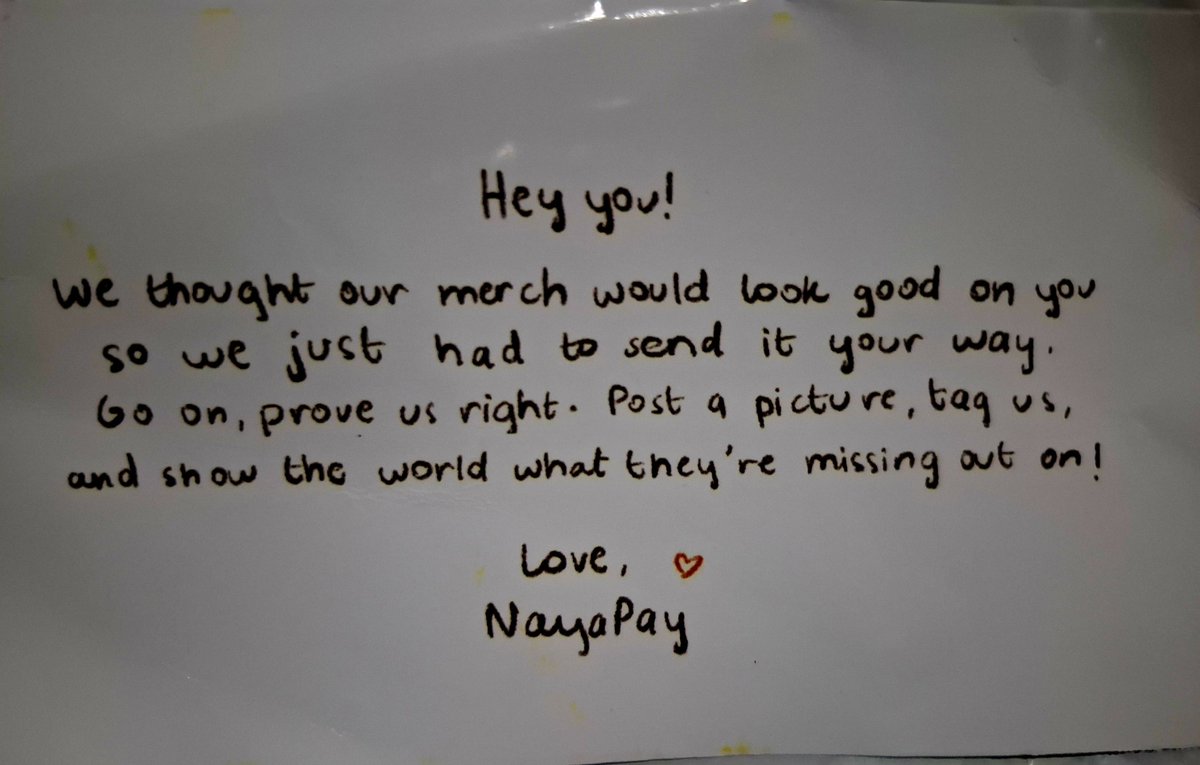 Hey you!
We thought our merch would look good on you
so we just had to send it your way.
Go on, prove us right. Post a picture, tag us,
and show the world what they're missing out on!
Love, ♡
NayaPay